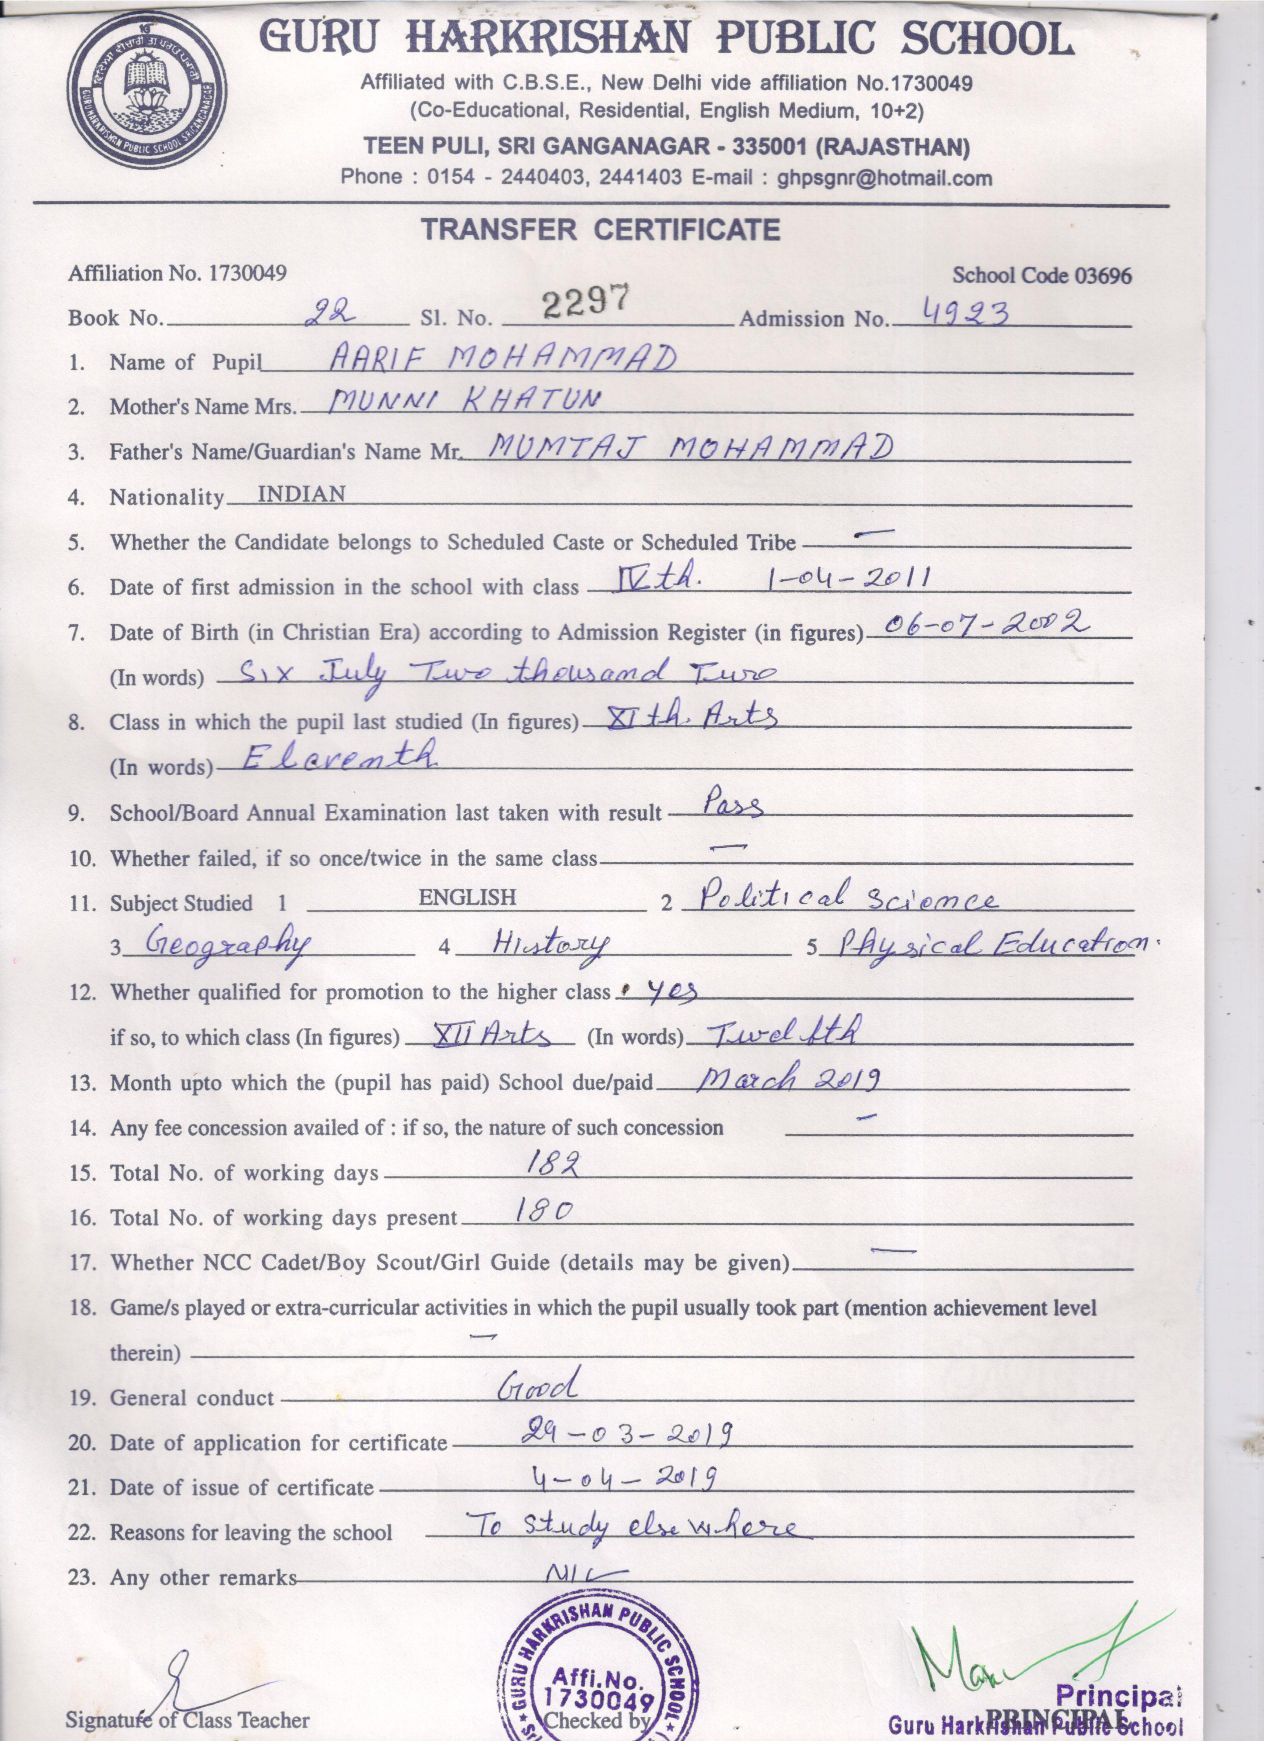 GURU HARKRISHAN PUBLIC SCHOOL
Affiliated with C.B.S.E., New Delhi vide affiliation No.1730049
(Co-Educational, Residential, English Medium, 10+2)
TEEN PULI, SRI GANGANAGAR - 335001 (RAJASTHAN)
Phone : 0154 - 2440403, 2441403 E-mail : ghpsgnr@hotmail.com
GURU HARKRISHAN PUBLIC SCHOOL SRIGANGANAGAR
TRANSFER CERTIFICATE
Affiliation No. 1730049 School Code 03696
Book No. 22 Sl. No. 2297 Admission No. 4923
1. Name of Pupil AARIF MOHAMMAD
2. Mother's Name Mrs. MUNNI KHATUN
3. Father's Name/Guardian's Name Mr. MUMTAJ MOHAMMAD
4. Nationality INDIAN
5. Whether the Candidate belongs to Scheduled Caste or Scheduled Tribe —
6. Date of first admission in the school with class IVth. 1-04-2011
7. Date of Birth (in Christian Era) according to Admission Register (in figures) 06-07-2002
(In words) Six July Two thousand Two
8. Class in which the pupil last studied (In figures) XIth. Arts
(In words) Eleventh
9. School/Board Annual Examination last taken with result Pass
10. Whether failed, if so once/twice in the same class —
11. Subject Studied 1 ENGLISH 2 Political Science
3 Geography 4 History 5 Physical Education.
12. Whether qualified for promotion to the higher class yes
if so, to which class (In figures) XII Arts (In words) Twelfth
13. Month upto which the (pupil has paid) School due/paid March 2019
14. Any fee concession availed of : if so, the nature of such concession —
15. Total No. of working days 182
16. Total No. of working days present 180
17. Whether NCC Cadet/Boy Scout/Girl Guide (details may be given) —
18. Game/s played or extra-curricular activities in which the pupil usually took part (mention achievement level
therein) —
19. General conduct Good
20. Date of application for certificate 29-03-2019
21. Date of issue of certificate 4-04-2019
22. Reasons for leaving the school To study elsewhere
23. Any other remarks NIL
GURU HARKRISHAN PUBLIC SCHOOL
Affi.No.
1730049
Signature of Class Teacher Checked by PRINCIPAL
Principal
Guru Harkrishan Public School